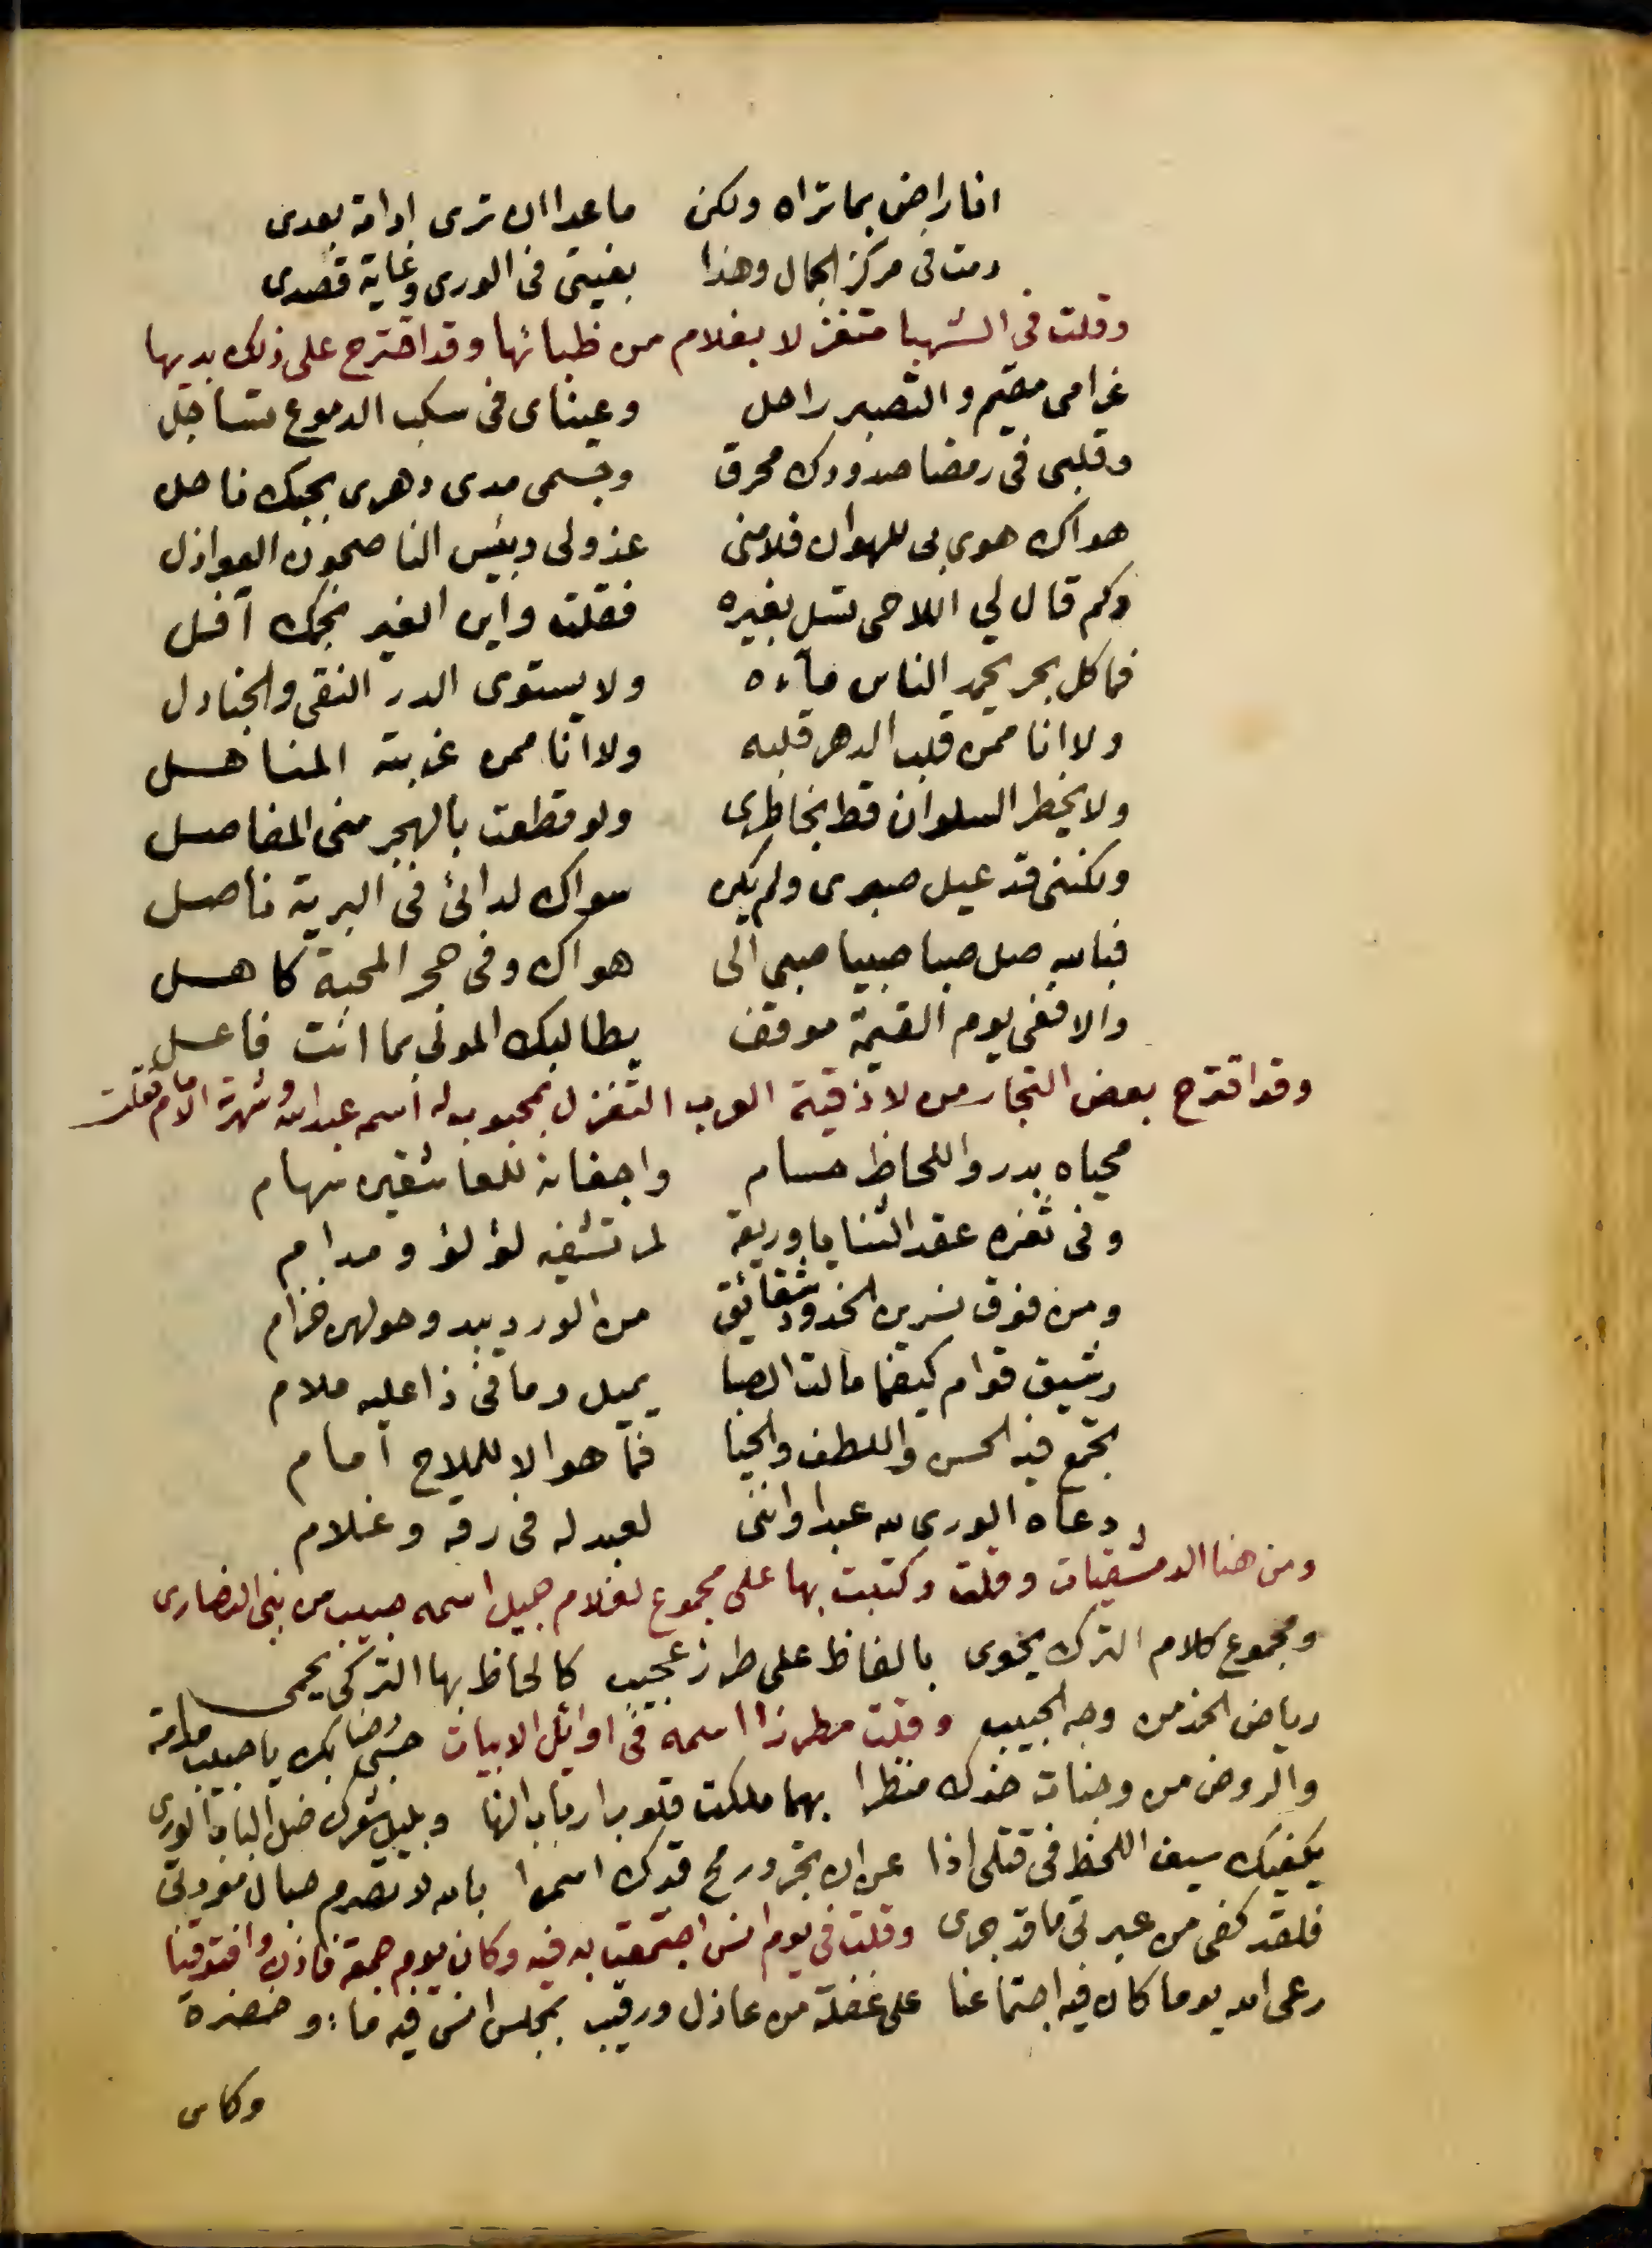 انا راض بما تراه ولكن ما عدا ان ترى ادامة بعدى
دمت فى مركز الجمال وهذا بغيتى فى الورى وغاية قصدى
وقلت فى الشهبا متغزلا بغلام من ظبائها وقد اقترح على ذلك بديها
غرامى مقيم والتصبر راحل وعيناى فى سكب الدموع تساجل
وقلبى فى رمضا صدودك محرق وجسمى مدى دهرى بحبك ناحل
هواك هوى بى للهوان فلامنى عذولى وبئس الناصحون العواذل
وكم قال لي اللاحى تسل بغيره فقلت واين الغير نجمك آفل
فما كل بحر يحمد الناس مآءه ولا يستوى الدر النقى والجنادل
ولا انا ممن قلب الدهر قلبه ولا انا ممن غربته المناهل
ولا يخطر السلوان قط بخاطرى ولو قطعت بالهجر منى المفاصل
ولكننى قد عيل صبرى ولم يكن سواك لدائى فى البرية ناصل
فبالله صل صبا صبيا صبى الى هواك وفى حجر المحبة كاهل
والا ففى يوم القيمة موقف يطالبك المولى بما انت فاعل
وقد اقترح بعض التجار من لاذقية العرب التغزل بمحبوب له اسمه عبد الله وشهرته الامام فقلت
محياه بدر واللحاظ حسام واجفانه للعاشقين سهام
وفى ثغره عقد الثنايا وريقه لمرتشفيه لؤلؤ ومدام
ومن فوق نسرين الخدود شقائق من الورد يبد وحولهن خزام
رشيق قوام كيفما مالت الصبا يميل وما فى ذا عليه ملام
تجمع فيه الحسن واللطف والحيا فما هو الا للملاح امام
دعاه الورى لله عبدا واننى لعبد له فى رقه وغلام
ومن هنا الدمشقيات وقلت وكتبت بها على مجموع لغلام جميل اسمه حبيب من بنى النصارى
ومجموع كلام الترك يحوى بالفاظ على طرز عجيب كالحاظ بها التركى يحمى
رياض الخد من وجه الحبيب وقلت مطرزا اسمه فى اوائل الابيات حسبى رضابك يا حبيب مدامة
والروض من وجنات خدك منظرا بهما ملكت قلوب ارباب النها وبليل شعرك ضل الباب الورى
يكفيك سيف اللحظ فى قتلى اذا عن ان تجرد رمح قدك اسمرا بالله لا تصرم حبال مودتى
فلقد كفى من عبرتى ما قد جرى وقلت فى يوم انس اجتمعت به فيه وكان يوم جمعة فاذن وافترقنا
رعى الله يوما كان فيه اجتماعنا على غفلة من عاذل ورقيب بمجلس انس فيه ماء وخضرة
وكاس